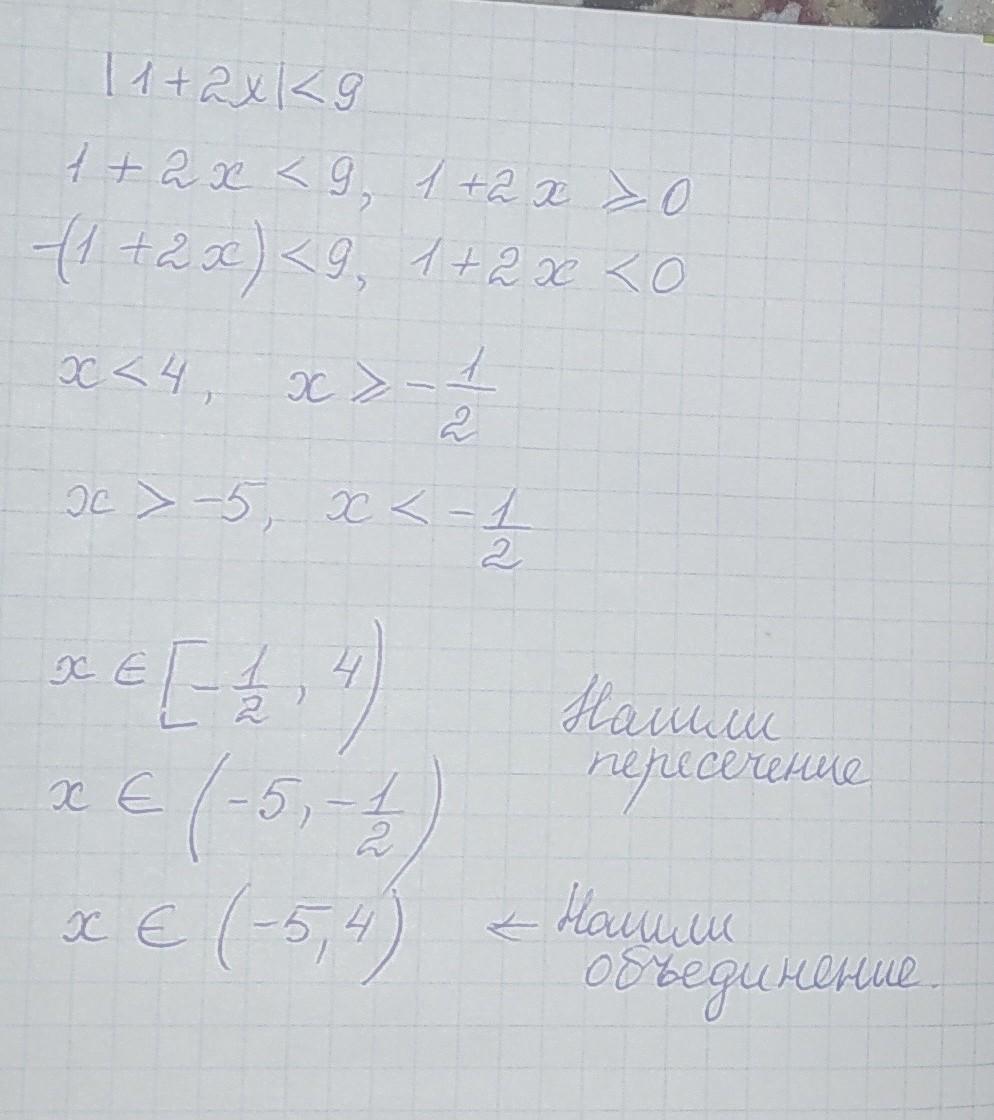 |1+2x|<9
1+2x<9, 1+2x⩾0
-(1+2x)<9, 1+2x<0
x<4, x⩾-1/2
x>-5, x<-1/2
x∈[-1/2, 4)
Нашли
пересечение
x∈(-5,-1/2)
x∈(-5,4) ← Нашли
объединение.